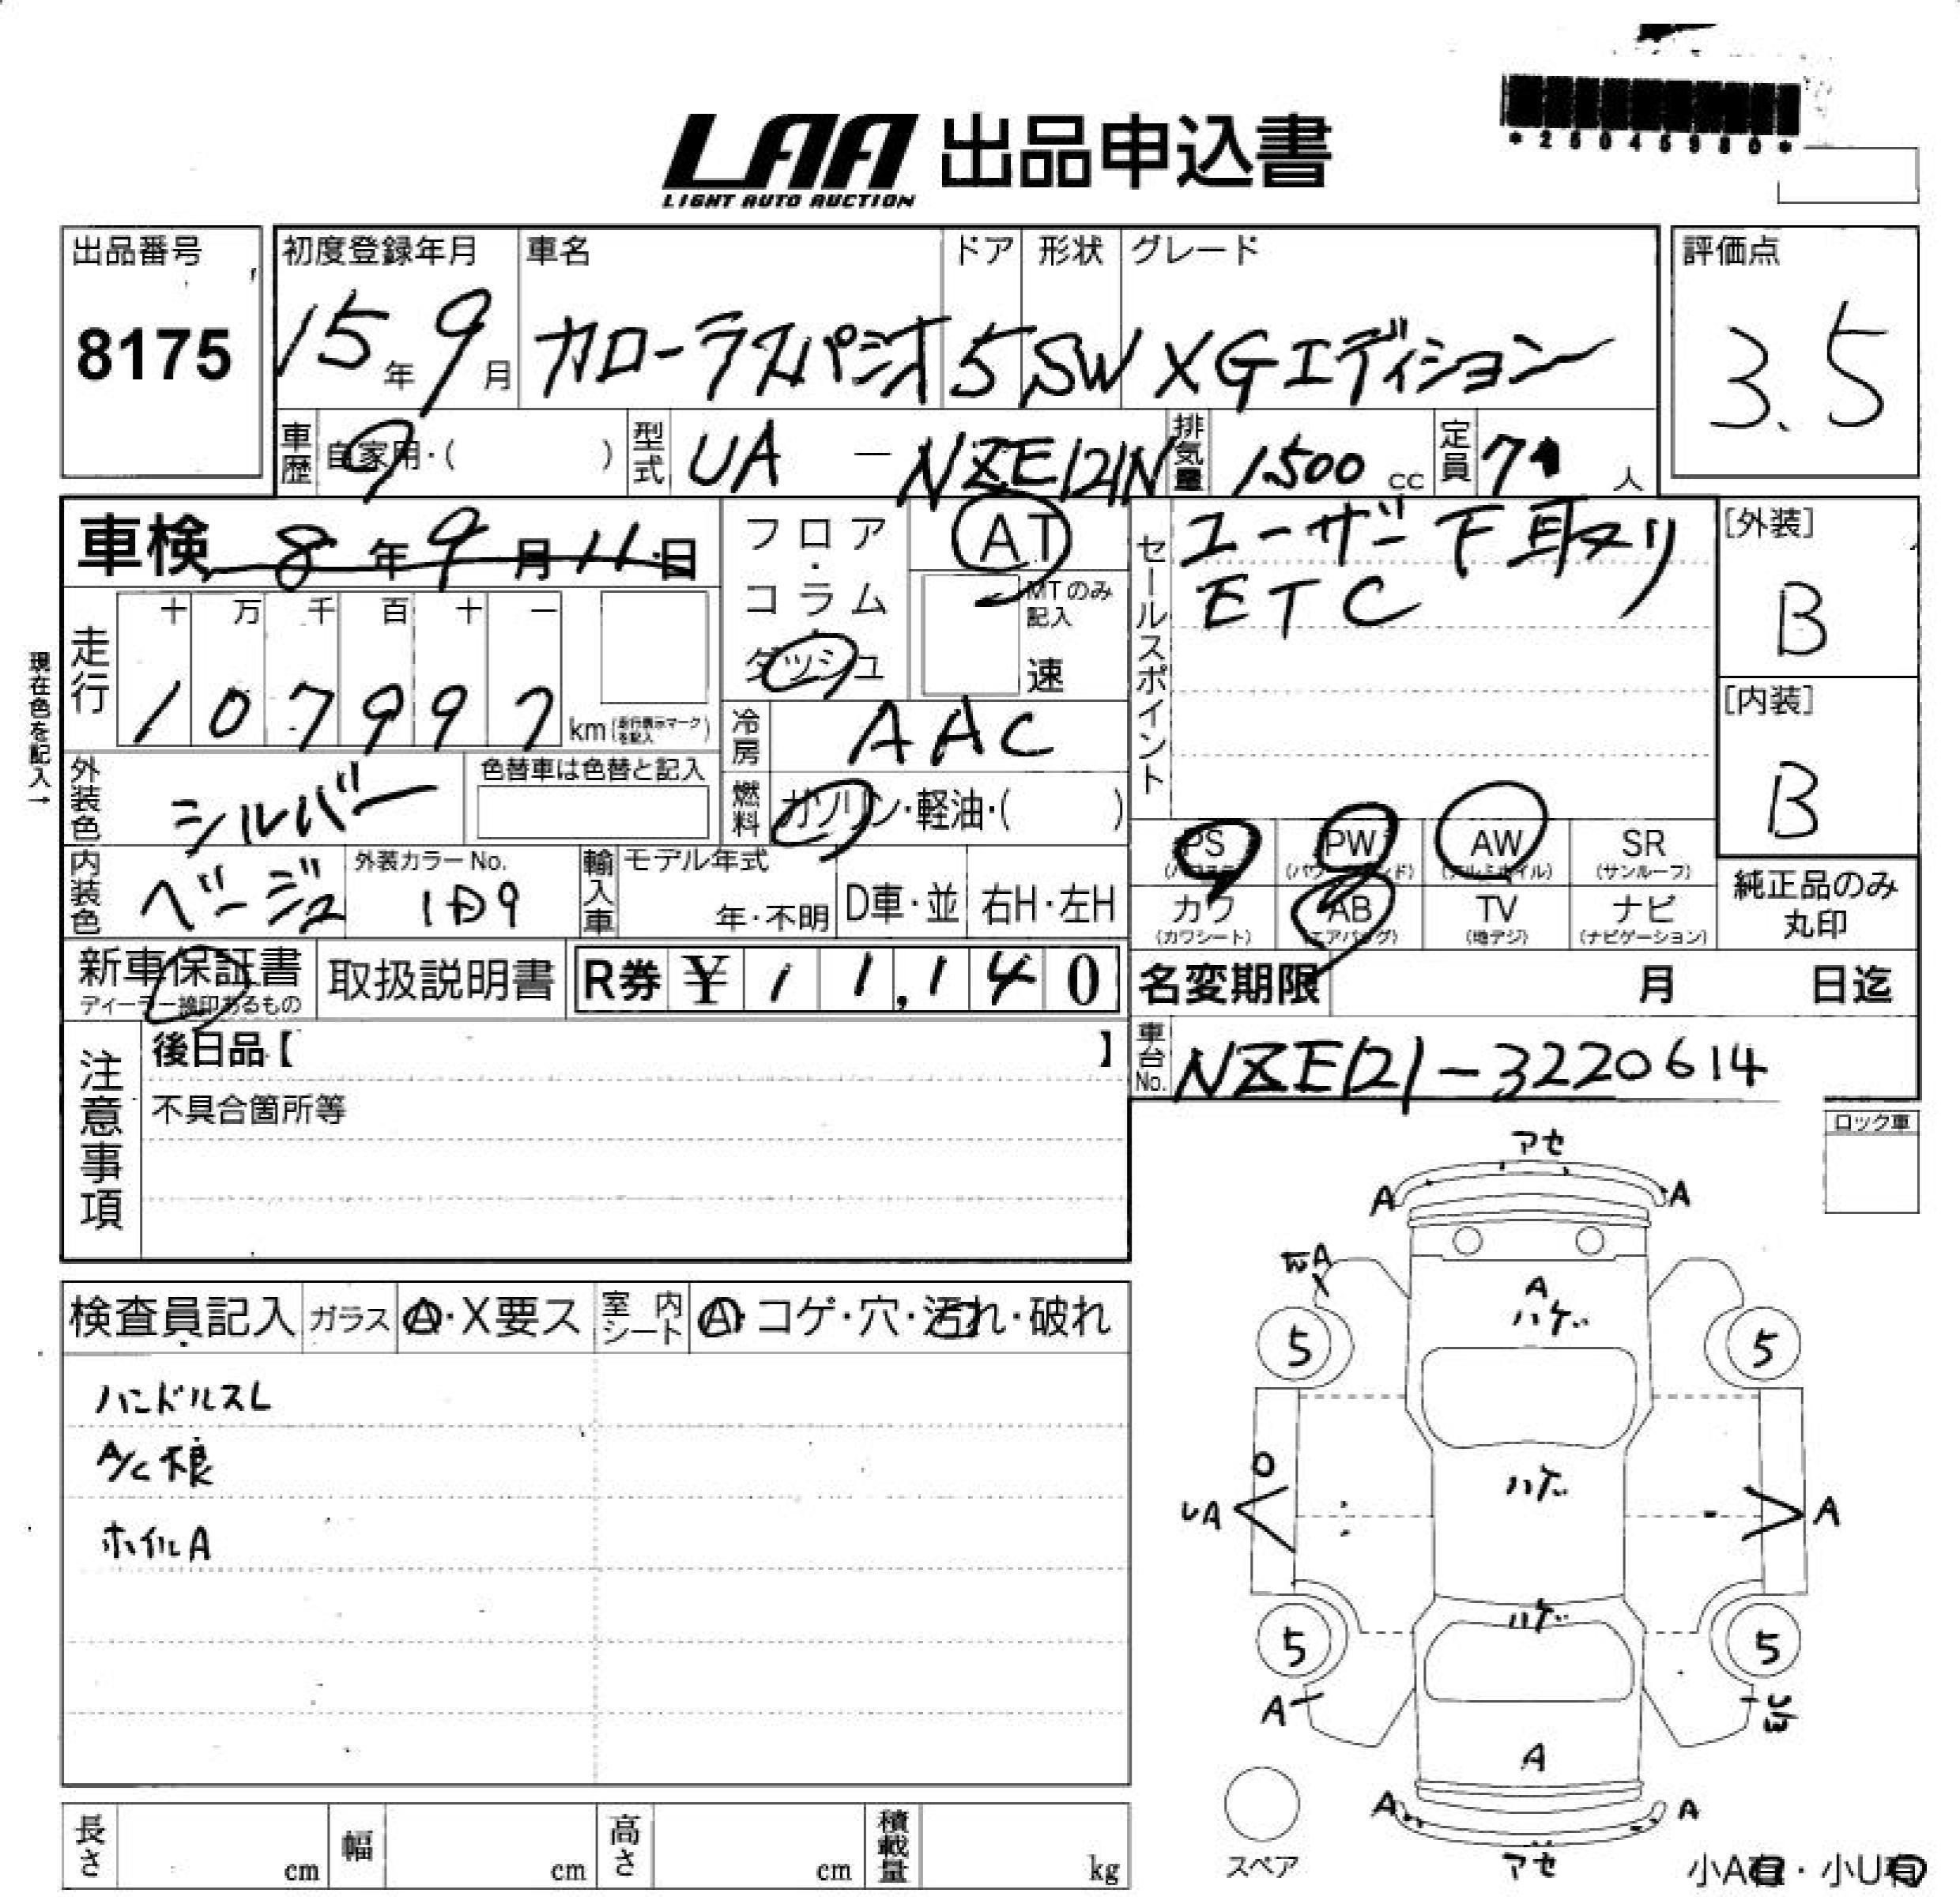 *25045980*
LAA 出品申込書
LIGHT AUTO AUCTION
出品番号 8175
初度登録年月 15年 9月
車名 カローラスパシオ
ドア 5
形状 SW
グレード XGエディション
評価点 3.5
車歴 自家用・( )
型式 UA — NZE121N
排気量 1500 cc
定員 7 人
車検 8年 9月 11日
フロア・コラム・ダッシュ
AT
MTのみ記入
速
セールスポイント
ユーザー下取り
ETC
[外装] B
[内装] B
現在色を記入→
走行 十 万 千 百 十 一
1 0 7 9 9 7 km (走行表示マークを記入)
冷房 AAC
外装色 シルバー
色替車は色替と記入
燃料 ガソリン・軽油・( )
PS (パワステ)
PW (パワーウインド)
AW (アルミホイル)
SR (サンルーフ)
カワ (カワシート)
AB (エアバッグ)
TV (地デジ)
ナビ (ナビゲーション)
純正品のみ
丸印
内装色 ベージュ
外装カラーNo. 1D9
輸入車 モデル年式 年・不明
D車・並
右H・左H
新車保証書
ディーラー捺印あるもの
取扱説明書
R券 ¥ 1 1,1 4 0
名変期限 月 日迄
注意事項
後日品【 】
不具合箇所等
車台No. NZE121-3220614
ロック車
検査員記入
ガラス A・X要ス
室内シート A・コゲ・穴・汚れ・破れ
ハンドルスレ
A/C不良
ホイルA
アセ
A A
A
A
ハゲ
5 5
O
ハゲ
UA A
ハゲ
5 5
A
A
A A
アセ
スペア
小A有・小U有
長さ cm
幅 cm
高さ cm
積載量 kg